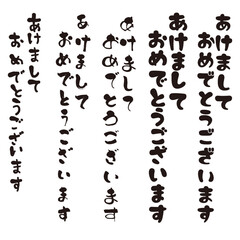 あけまして
おめでとうございます
あけまして
おめでとうございます
あけまして
おめでとうございます
あけまして
おめでとうございます
あけまして
おめでとうございます